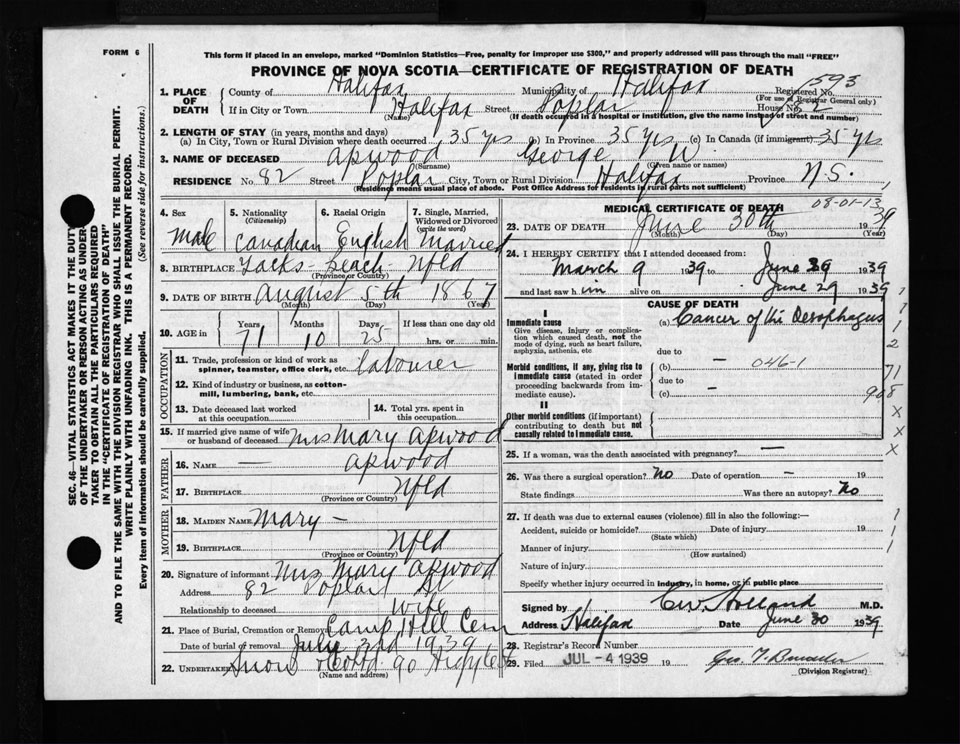 FORM 6
This form if placed in an envelope, marked "Dominion Statistics—Free, penalty for improper use $300," and properly addressed will pass through the mail "FREE"
PROVINCE OF NOVA SCOTIA—CERTIFICATE OF REGISTRATION OF DEATH
1593
1. PLACE OF DEATH
County of Halifax Municipality of Halifax Registered No.
(For use of Registrar General only)
If in City or Town Halifax Street Poplar House No. 82
(Name) (If death occurred in a hospital or institution, give the name instead of street and number)
2. LENGTH OF STAY (in years, months and days)
(a) In City, Town or Rural Division where death occurred 35 yrs (b) In Province 35 yrs (c) In Canada (if immigrant) 35 yrs
3. NAME OF DECEASED Apwood George W.
(Surname) (Given name or names)
RESIDENCE No. 82 Street Poplar City, Town or Rural Division Halifax Province N.S.
(Residence means usual place of abode. Post Office Address for residents in rural parts not sufficient)
4. Sex
Male
5. Nationality
(Citizenship)
Canadian
6. Racial Origin
English
7. Single, Married, Widowed or Divorced
(write the word)
Married
8. BIRTHPLACE Beach Nfld
(Province or Country)
9. DATE OF BIRTH August 5th 1867
(Month) (Day) (Year)
10. AGE in
Years Months Days If less than one day
71 10 25 hrs. or min.
OCCUPATION
11. Trade, profession or kind of work as spinner, teamster, office clerk, etc. labourer
12. Kind of industry or business, as cotton-mill, lumbering, bank, etc.
13. Date deceased last worked at this occupation
14. Total yrs. spent in this occupation
15. If married give name of wife or husband of deceased Mrs Mary Apwood
FATHER
16. NAME — Apwood
17. BIRTHPLACE Nfld
(Province or Country)
MOTHER
18. MAIDEN NAME Mary —
19. BIRTHPLACE Nfld
(Province or Country)
20. Signature of informant Mrs Mary Apwood
Address 82 Poplar St
Relationship to deceased Wife
21. Place of Burial, Cremation or Removal Camp Hill Cem
Date of burial or removal July 3rd 1939
22. UNDERTAKER Snow & Co Ltd 90 Argyle St
(Name and address)
MEDICAL CERTIFICATE OF DEATH 08-01-13
23. DATE OF DEATH June 30th 1939
(Month) (Day) (Year)
24. I HEREBY CERTIFY that I attended deceased from:
March 9 1939 to June 29 1939
and last saw him alive on June 29 1939
CAUSE OF DEATH
I
Immediate cause
Give disease, injury or complication which caused death, not the mode of dying, such as heart failure, asphyxia, asthenia, etc
(a) Cancer of the Oesophagus
due to
Morbid conditions, if any, giving rise to immediate cause (stated in order proceeding backwards from immediate cause).
(b) 046-1
due to
(c) —
II
Other morbid conditions (if important) contributing to death but not causally related to immediate cause.
25. If a woman, was the death associated with pregnancy? —
26. Was there a surgical operation? No Date of operation — 19
State findings Was there an autopsy? No
27. If death was due to external causes (violence) fill in also the following:—
Accident, suicide or homicide? Date of injury 19
(State which)
Manner of injury
(How sustained)
Nature of injury
Specify whether injury occurred in industry, in home, or in public place
Signed by Holland M.D.
Address Halifax Date June 30 1939
28. Registrar's Record Number
29. Filed JUL - 4 1939 19
(Division Registrar)
SEC. 46—VITAL STATISTICS ACT MAKES IT THE DUTY
OF THE UNDERTAKER OR PERSON ACTING AS UNDER-
TAKER TO OBTAIN ALL THE PARTICULARS REQUIRED
IN THE "CERTIFICATE OF REGISTRATION OF DEATH"
AND TO FILE THE SAME WITH THE DIVISION REGISTRAR WHO SHALL ISSUE THE BURIAL PERMIT.
WRITE PLAINLY WITH UNFADING INK. THIS IS A PERMANENT RECORD.
Every item of information should be carefully supplied. (See reverse side for instructions.)